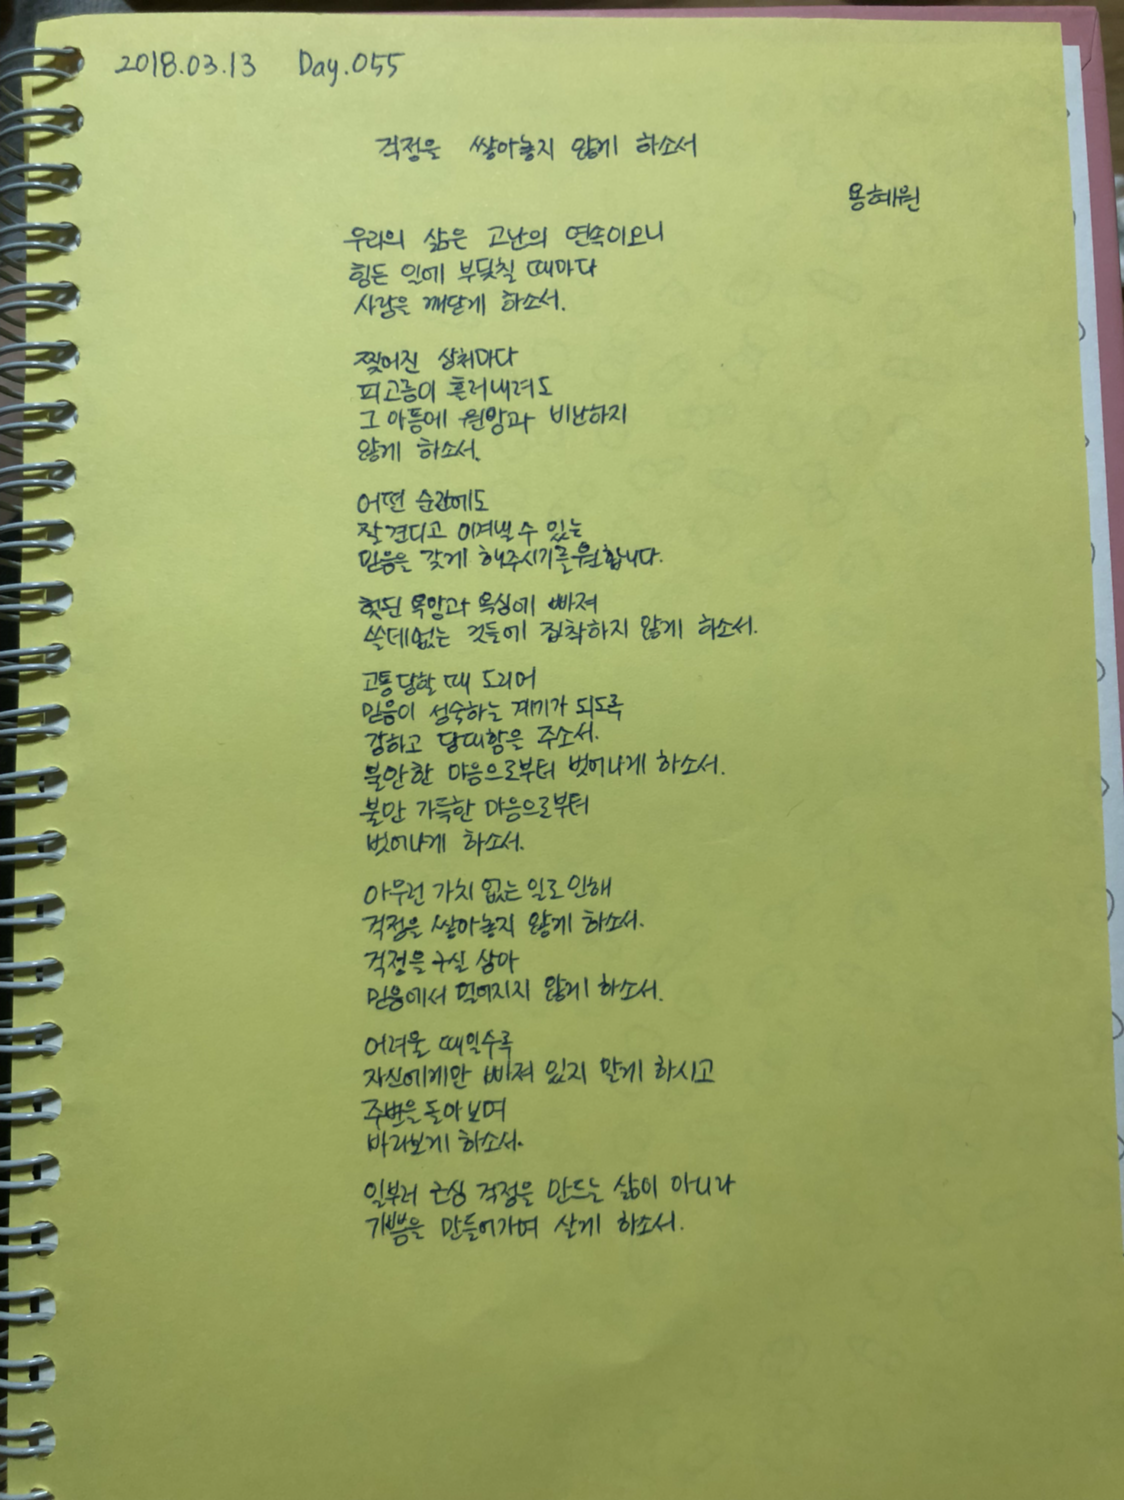 2018.03.13 Day.055
걱정을 쌓아놓지 않게 하소서
용혜원
우리의 삶은 고난의 연속이오니
힘든 일에 부딪칠 때마다
사랑을 깨닫게 하소서.
찢어진 상처마다
피고름이 흘러내려도
그 아픔에 원망과 비난하지
않게 하소서.
어떤 순간에도
잘 견디고 이겨낼 수 있는
믿음을 갖게 해주시기를 원합니다.
헛된 욕망과 욕심에 빠져
쓸데없는 것들에 집착하지 않게 하소서.
고통 당할 때 도리어
믿음이 성숙하는 계기가 되도록
강하고 담대함을 주소서.
불안한 마음으로부터 벗어나게 하소서.
불만 가득한 마음으로부터
벗어나게 하소서.
아무런 가치 없는 일로 인해
걱정을 쌓아놓지 않게 하소서.
걱정을 구실 삼아
믿음에서 멀어지지 않게 하소서.
어려울 때일수록
자신에게만 빠져 있지 말게 하시고
주변을 돌아보며
바라보게 하소서.
일부러 근심 걱정을 만드는 삶이 아니라
기쁨을 만들어가며 살게 하소서.